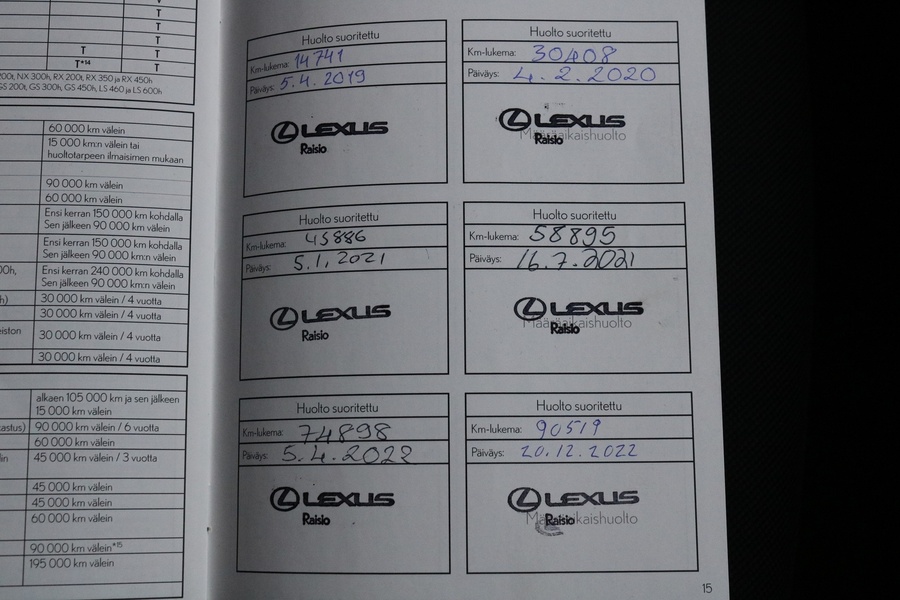 T
T
T
T
T
T
T*14
T
200t, NX 300h, RX 200t, RX 350 ja RX 450h
GS 200t, GS 300h, GS 450h, LS 460 ja LS 600h
60 000 km välein
15 000 km:n välein tai
huoltotarpeen ilmaisimen mukaan
90 000 km välein
60 000 km välein
Ensi kerran 150 000 km kohdalla
Sen jälkeen 90 000 km:n välein
Ensi kerran 150 000 km kohdalla
Sen jälkeen 90 000 km:n välein
00h,
Ensi kerran 240 000 km kohdalla
Sen jälkeen 90 000 km:n välein
h)
30 000 km välein / 4 vuotta
30 000 km välein / 4 vuotta
eiston
30 000 km välein / 4 vuotta
30 000 km välein / 4 vuotta
alkaen 105 000 km ja sen jälkeen
15 000 km välein
kastus)
90 000 km välein / 6 vuotta
60 000 km välein
in
45 000 km välein / 3 vuotta
45 000 km välein
45 000 km välein
60 000 km välein
90 000 km välein*15
195 000 km välein
Huolto suoritettu
Km-lukema: 14741
Päiväys: 5.4.2019
LEXUS
Raisio
Huolto suoritettu
Km-lukema: 30408
Päiväys: 4.2.2020
LEXUS
Määräaikaishuolto
Raisio
Huolto suoritettu
Km-lukema: 45886
Päiväys: 5.1.2021
LEXUS
Raisio
Huolto suoritettu
Km-lukema: 58895
Päiväys: 16.7.2021
LEXUS
Määräaikaishuolto
Raisio
Huolto suoritettu
Km-lukema: 74898
Päiväys: 5.4.2022
LEXUS
Raisio
Huolto suoritettu
Km-lukema: 90519
Päiväys: 20.12.2022
LEXUS
Määräaikaishuolto
Raisio
15